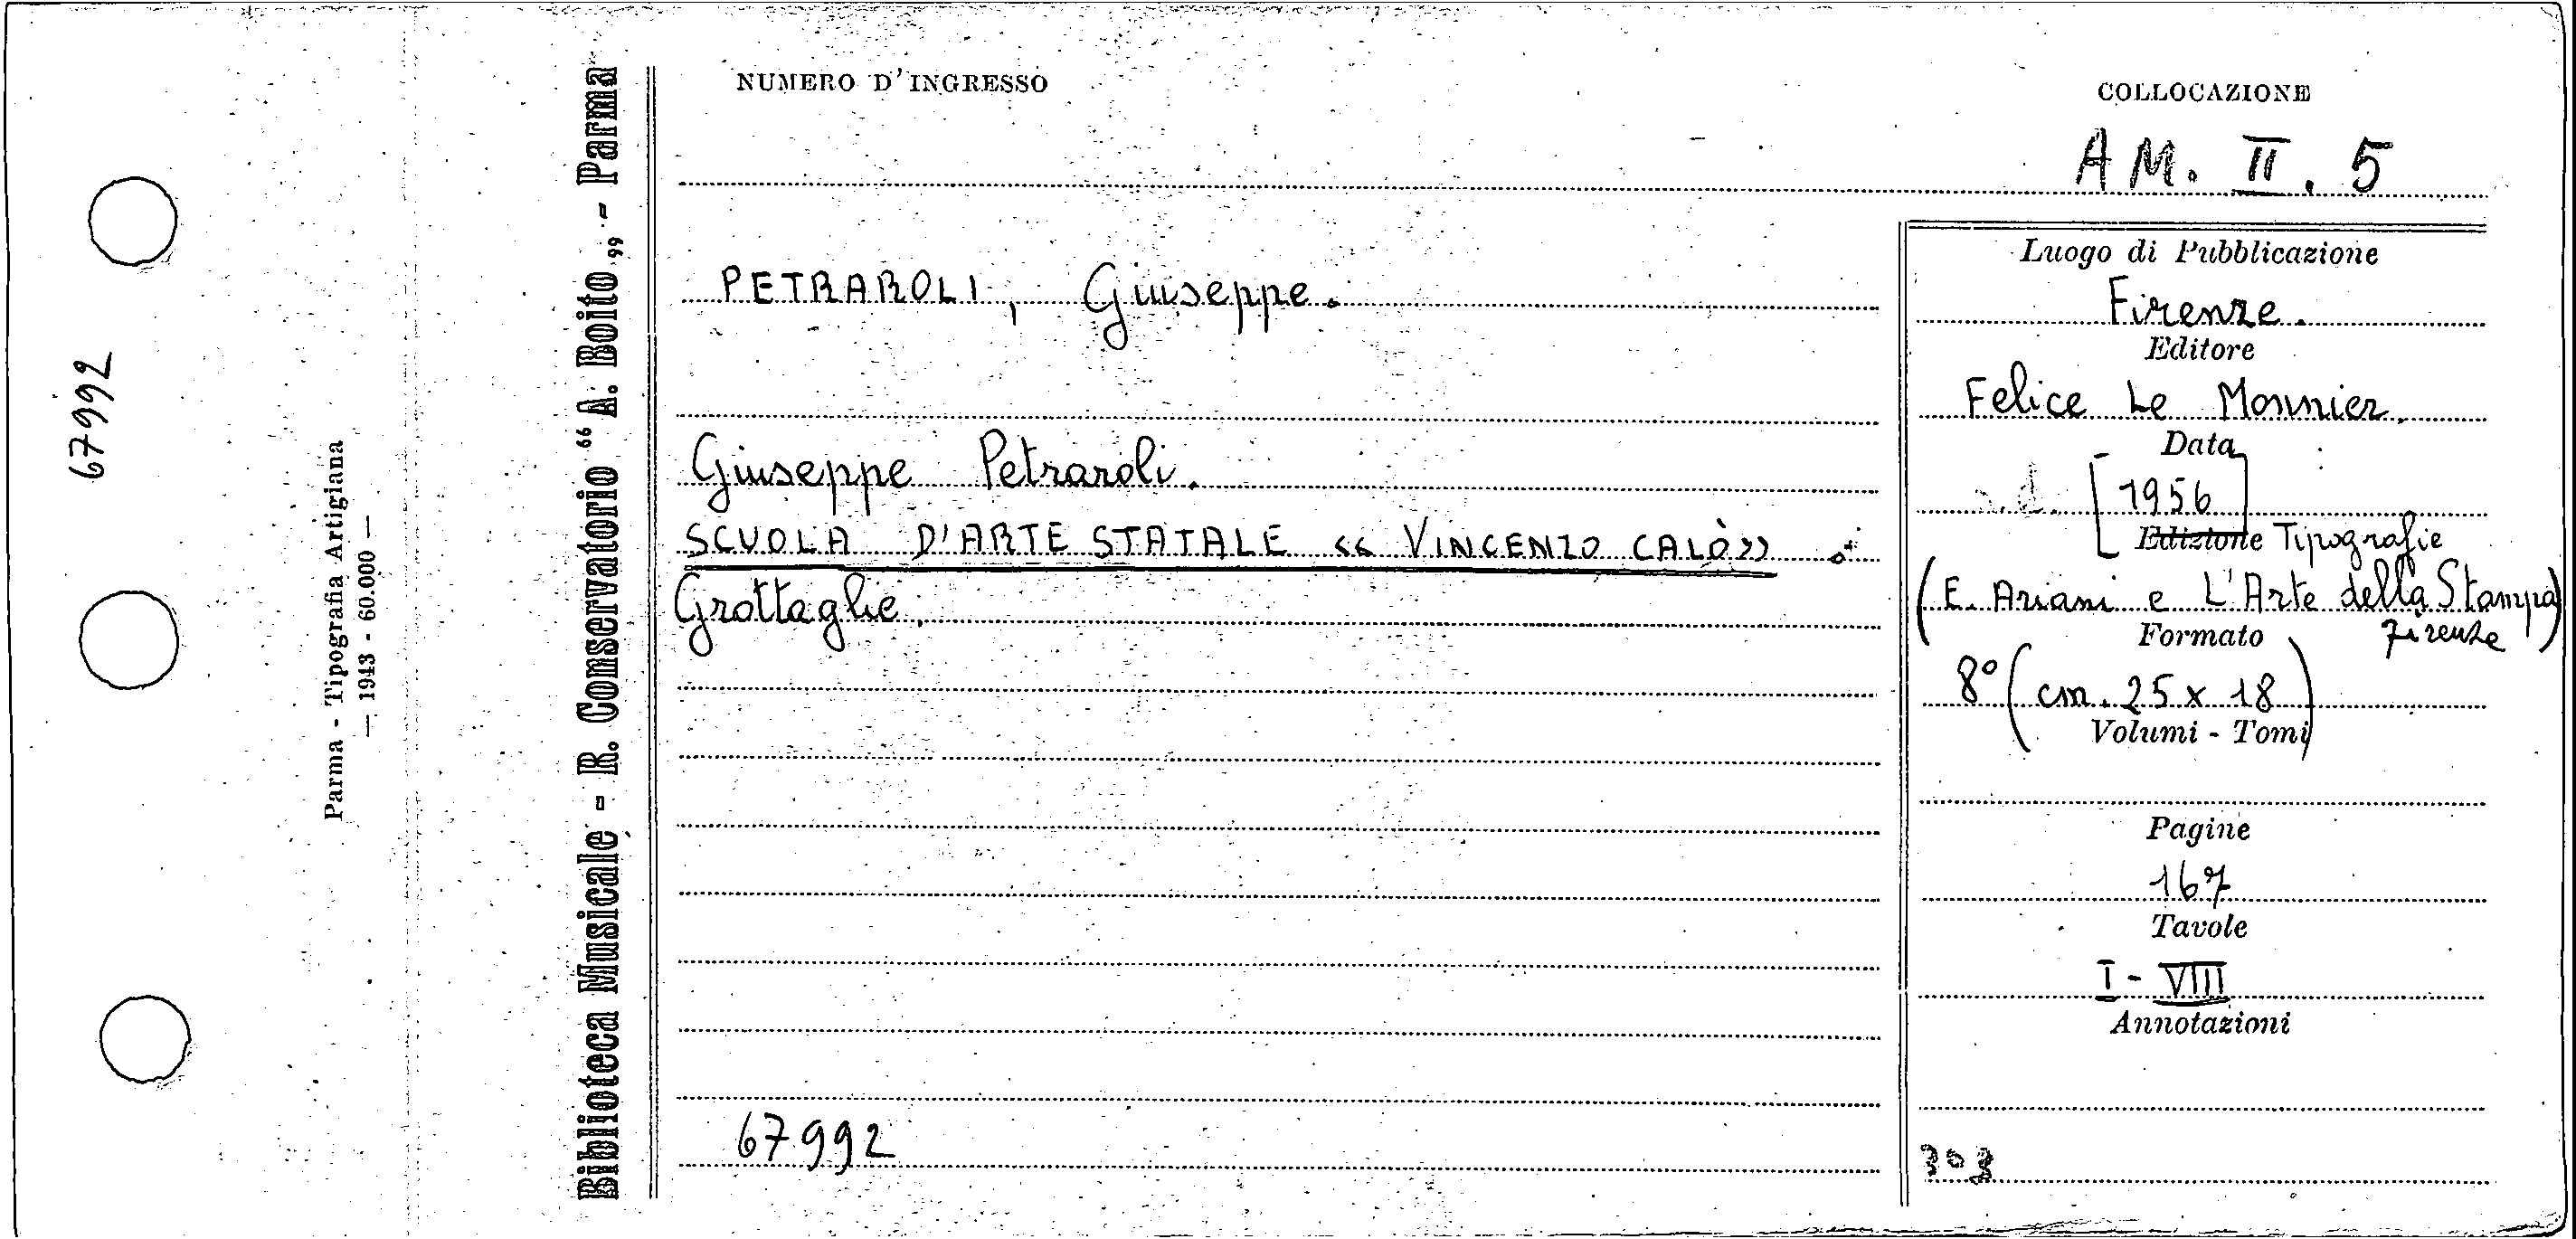 NUMERO D'INGRESSO
COLLOCAZIONE
AM. II. 5
PETRAROLI, Giuseppe.
Giuseppe Petraroli.
SCUOLA D'ARTE STATALE « VINCENZO CALÒ» .
Grottaglie.
67992
Luogo di Pubblicazione
Firenze.
Editore
Felice Le Monnier.
Data
s.d. [1956]
Edizione Tipografie
(E. Ariani e L'Arte della Stampa
Firenze)
Formato
8° (cm. 25 x 18)
Volumi - Tomi
Pagine
167
Tavole
I - VIII
Annotazioni
303
Biblioteca Musicale - R. Conservatorio “ A. Boito „ - Parma
Parma - Tipografia Artigiana
— 1943 - 60.000 —
67992